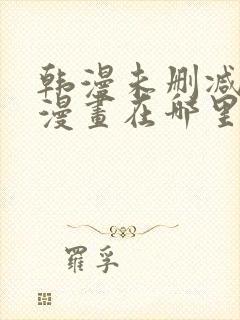 韩漫未删减
漫畫在哪里
羅孚